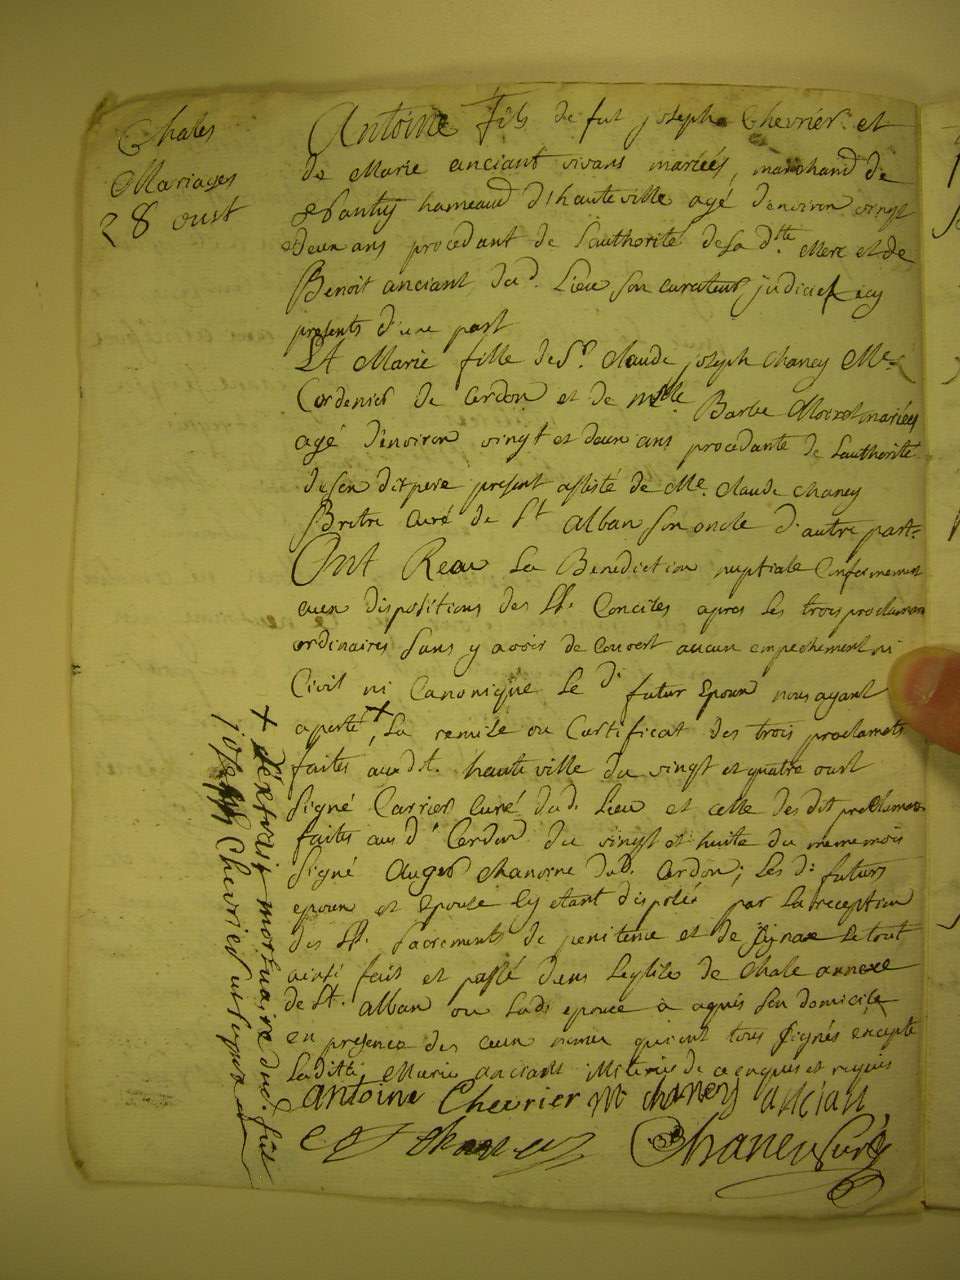 Chales
Mariages
28 oust
Antoine fils de fut joseph Chevrier et
de Marie anciant vivans mariéés, marchand de
hameaud d'hauteville agé d'environ vingt
deux ans procedant de l'authorité de sa d.tte Mere et de
Benoit anciant dud. Lieu son curateur judiciel icy
presents d'une part
Et Marie fille de Sr. Claude joseph Chaney Me.
Cordenier de Cerdon et de Barbe mariées
agé d'environ vingt et deux ans procedante de l'authorité
de son dit pere present assisté de Me. Claude Chaney
Pretre curé de St alban son oncle d'autre part
Ont Recu La Benediction nuptiale Conformement
aux dispositions des SSts. Conciles apres les trois proclamaons
ordinaires sans y avoir de couvert aucun empechement ni
Civil ni Canonique Le dt futur Epoux nous ayant
aporté + La remise ou Certificat des trois proclamats
faites aud. hauteville du vingt et quatre oust
signé Carrier Curé dud. Lieu et celle des dit proclamaons
faites aud t Cerdon du vingt et huite du meme mois
signé Auger chanoine dud. Cerdon; Les dt futurs
epoux et Epouse sy etant disposée par la reception
des SSts. Sacrements de penitence et de Le tout
ainsi fait et passé dans Leglise de Chale annexe
de St. alban ou Lade epouce a aquis son domicile
en presence des qui ont tous signés excepté
Laditte Marie anciant illiterée de ce enquis et requis
antoine Chevrier m chaney anciant
Chaney
Chaney Curé
+ d'extrait mortuaire dud. fut
joseph Chevrier